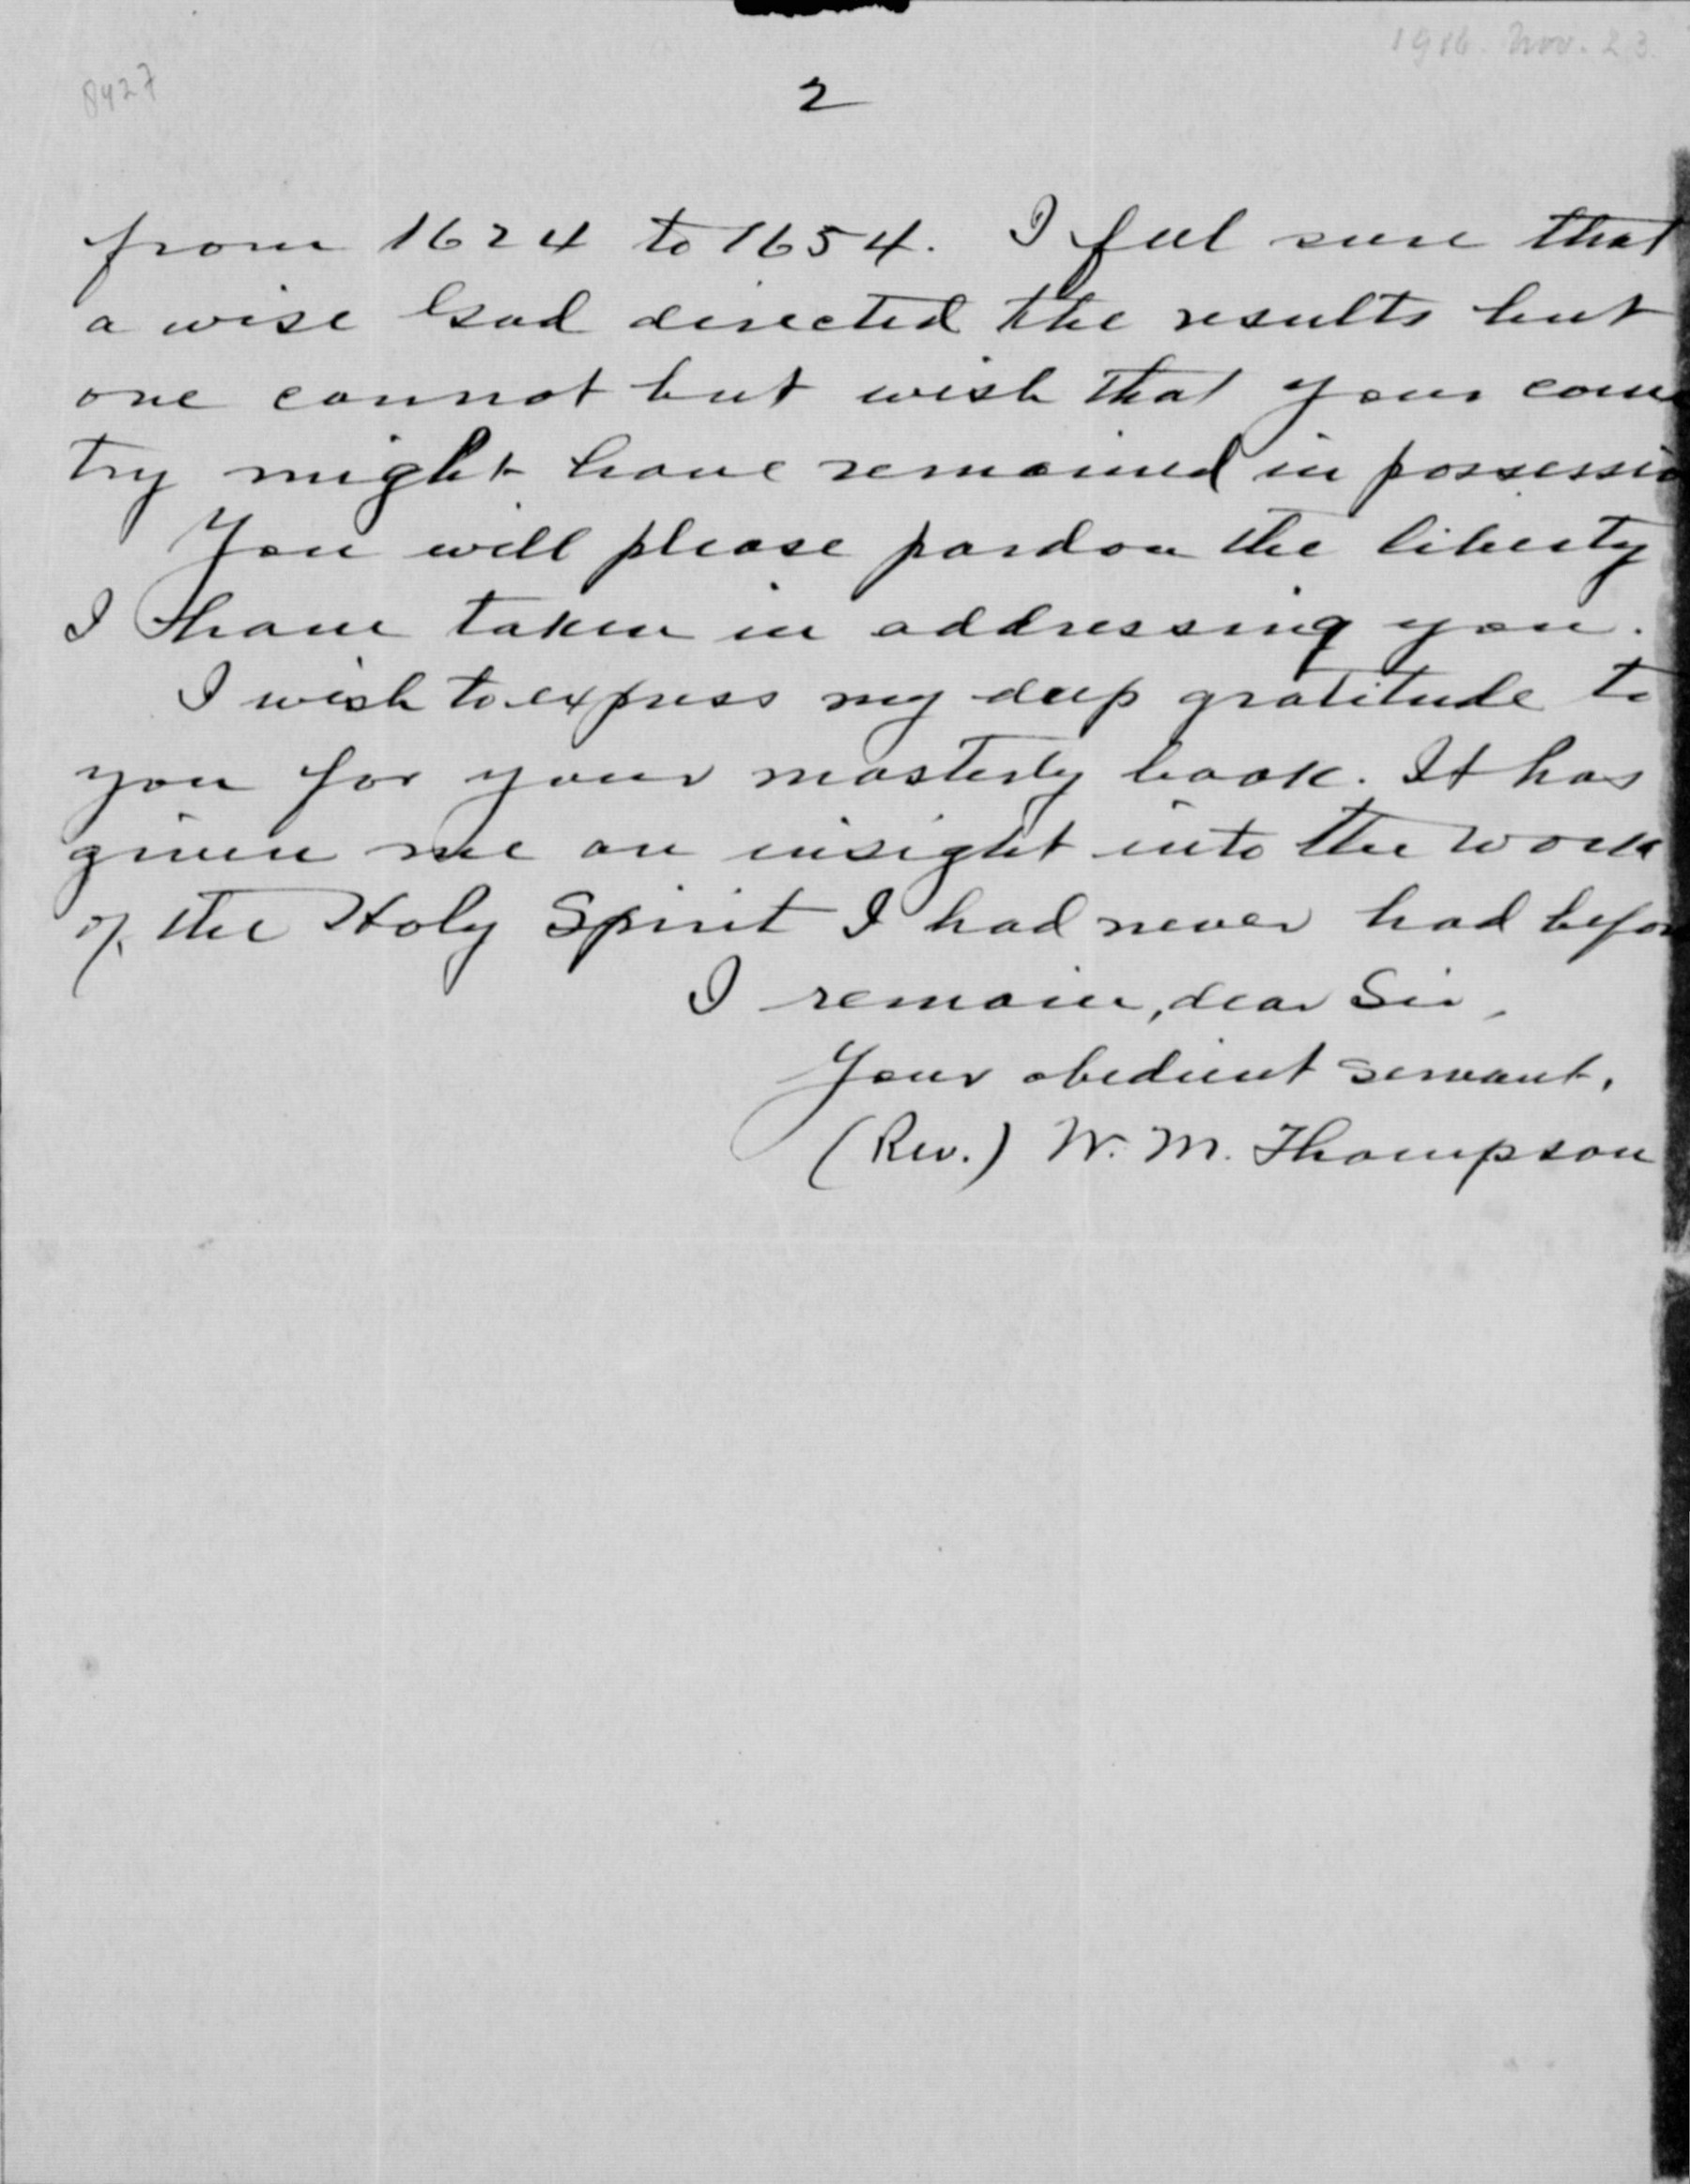 1916. Nov. 23.
8427
2
from 1624 to 1654. I feel sure that
a wise God directed the results but
one cannot but wish that your coun
try might have remained in possessio
You will please pardon the liberty
I have taken in addressing you.
I wish to express my deep gratitude to
you for your masterly book. It has
given me an insight into the work
of the Holy Spirit I had never had befor
I remain, dear Sir,
Your obedient servant,
(Rev.) W. M. Thompson